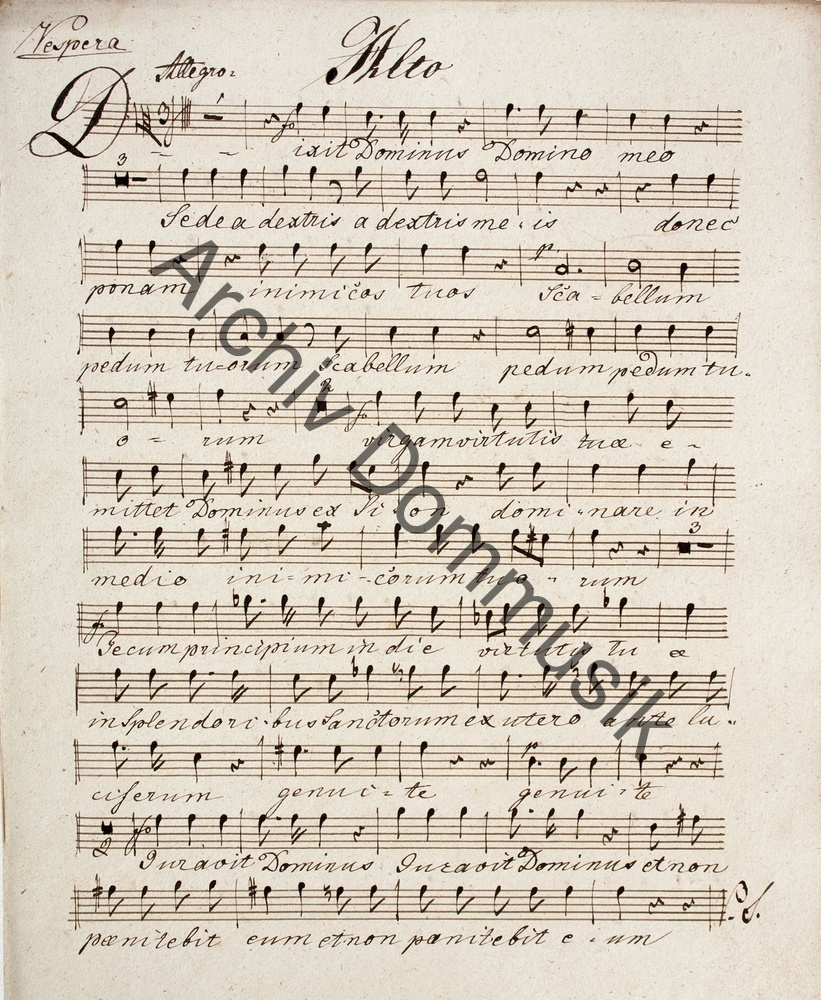 Vespera
Alto
Allegro:
Dixit Dominus Domino meo
3
Sede a dextris a dextris me - is donec
ponam inimicos tuos Sca - bellum
pedum tu-orum Scabellum pedum pedum tu -
o - rum virgam virtutis tuæ e -
mittet Dominus ex Si - on domi - nare in
medio ini - mi - corum tuo - rum
3
Tecum principium in die virtutis tu æ
in Splendori - bus Sanctorum ex utero ante lu -
ciferum genui - te genui - te
2
Juravit Dominus Juravit Dominus et non
pænitebit eum et non pænitebit e - um
Archiv Dommusik